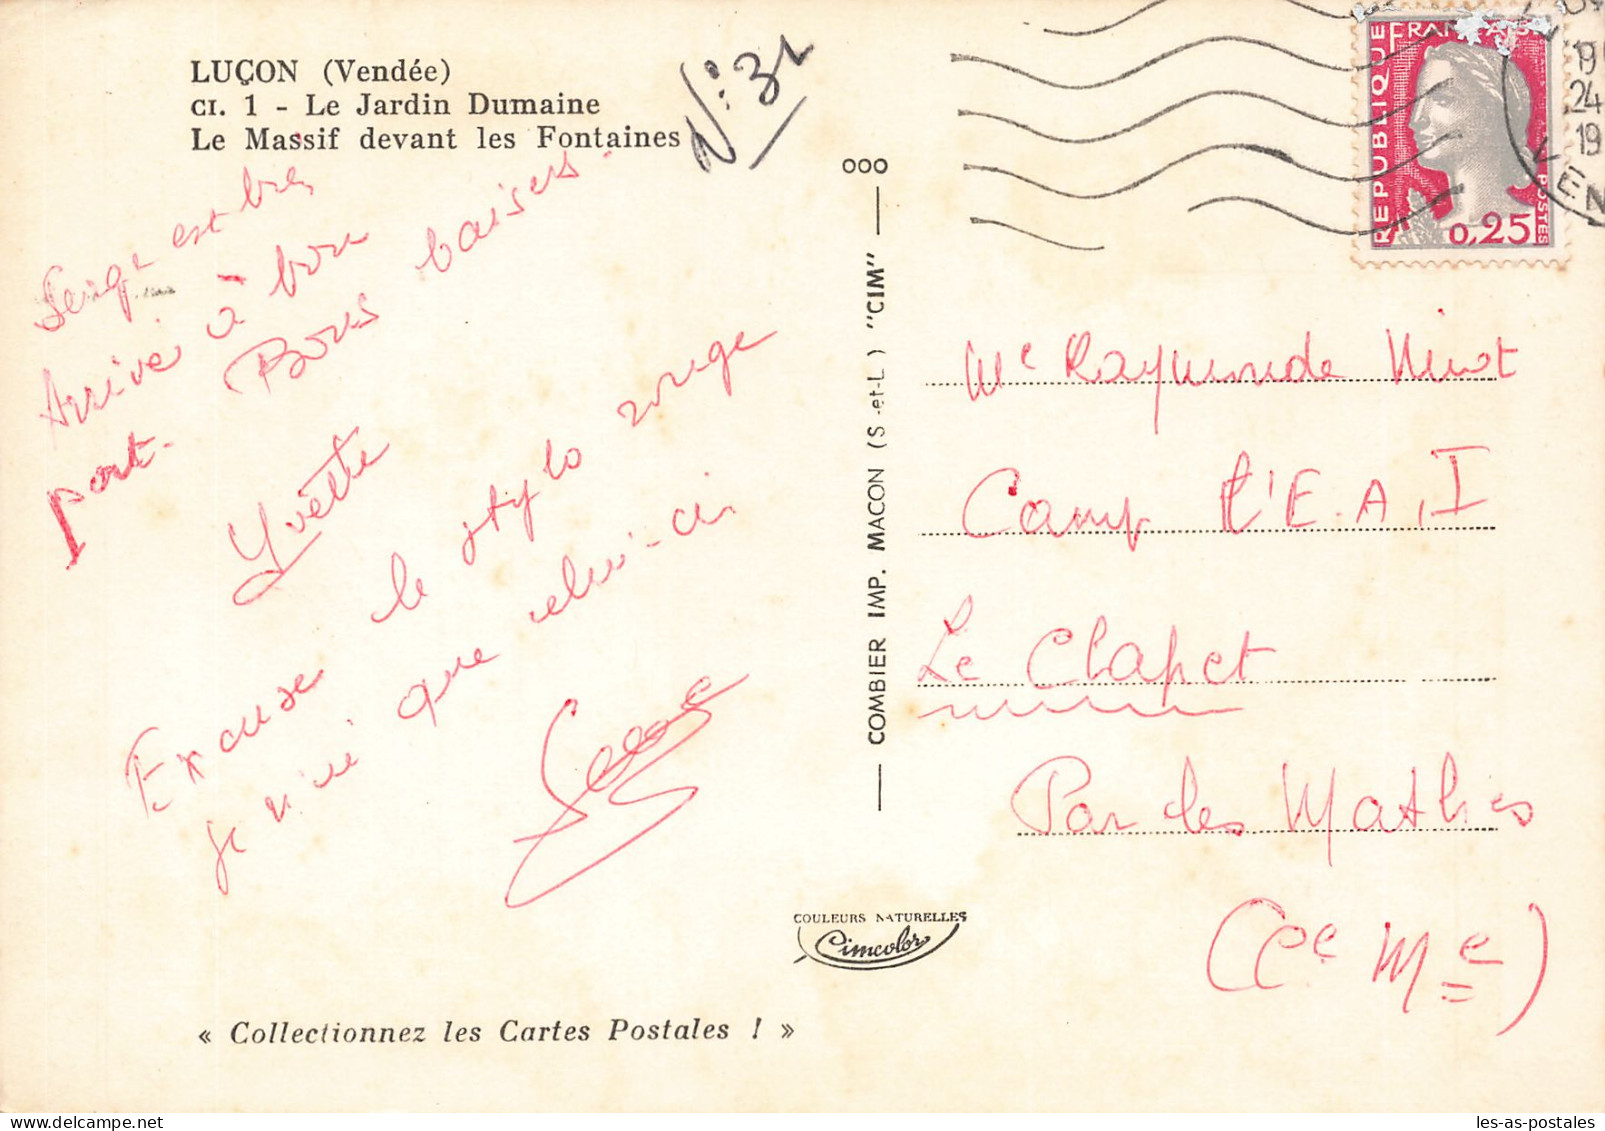 LUÇON (Vendée)
CI. 1 - Le Jardin Dumaine
Le Massif devant les Fontaines
N°:32
Serge est bien
Arrivé à bon
port.
Bons baisers.
Yvette
Excuse le stylo rouge
je n'ai que celui-ci
Serge
COMBIER IMP. MACON (S.-et-L.) "CIM"
000
REPUBLIQUE FRANÇAISE
0,25
POSTES
19
24
19
Me Raymonde
Camp l'E.A.I
Le Clapet
Par les Mathes
(Ce Me)
COULEURS NATURELLES
Cimcolor
« Collectionnez les Cartes Postales ! »
les-as-postales